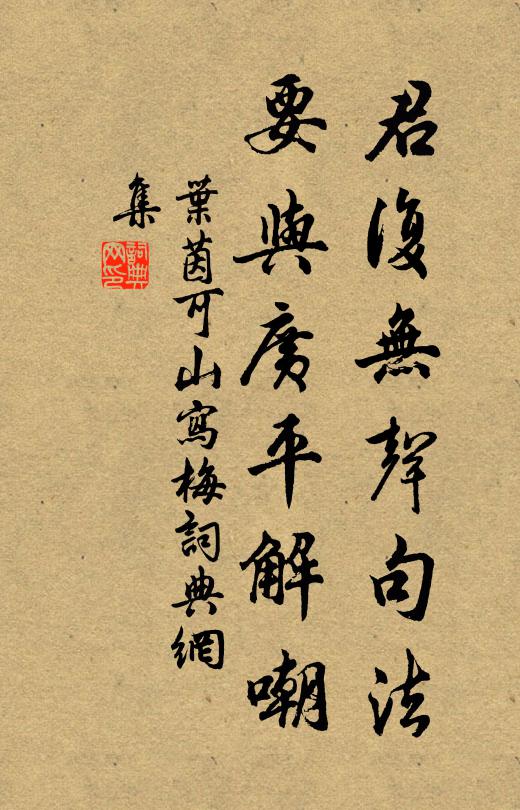 君復無聲句法
要與廣平解嘲
葉茵可山寫梅詞典網
集
詞典
网印